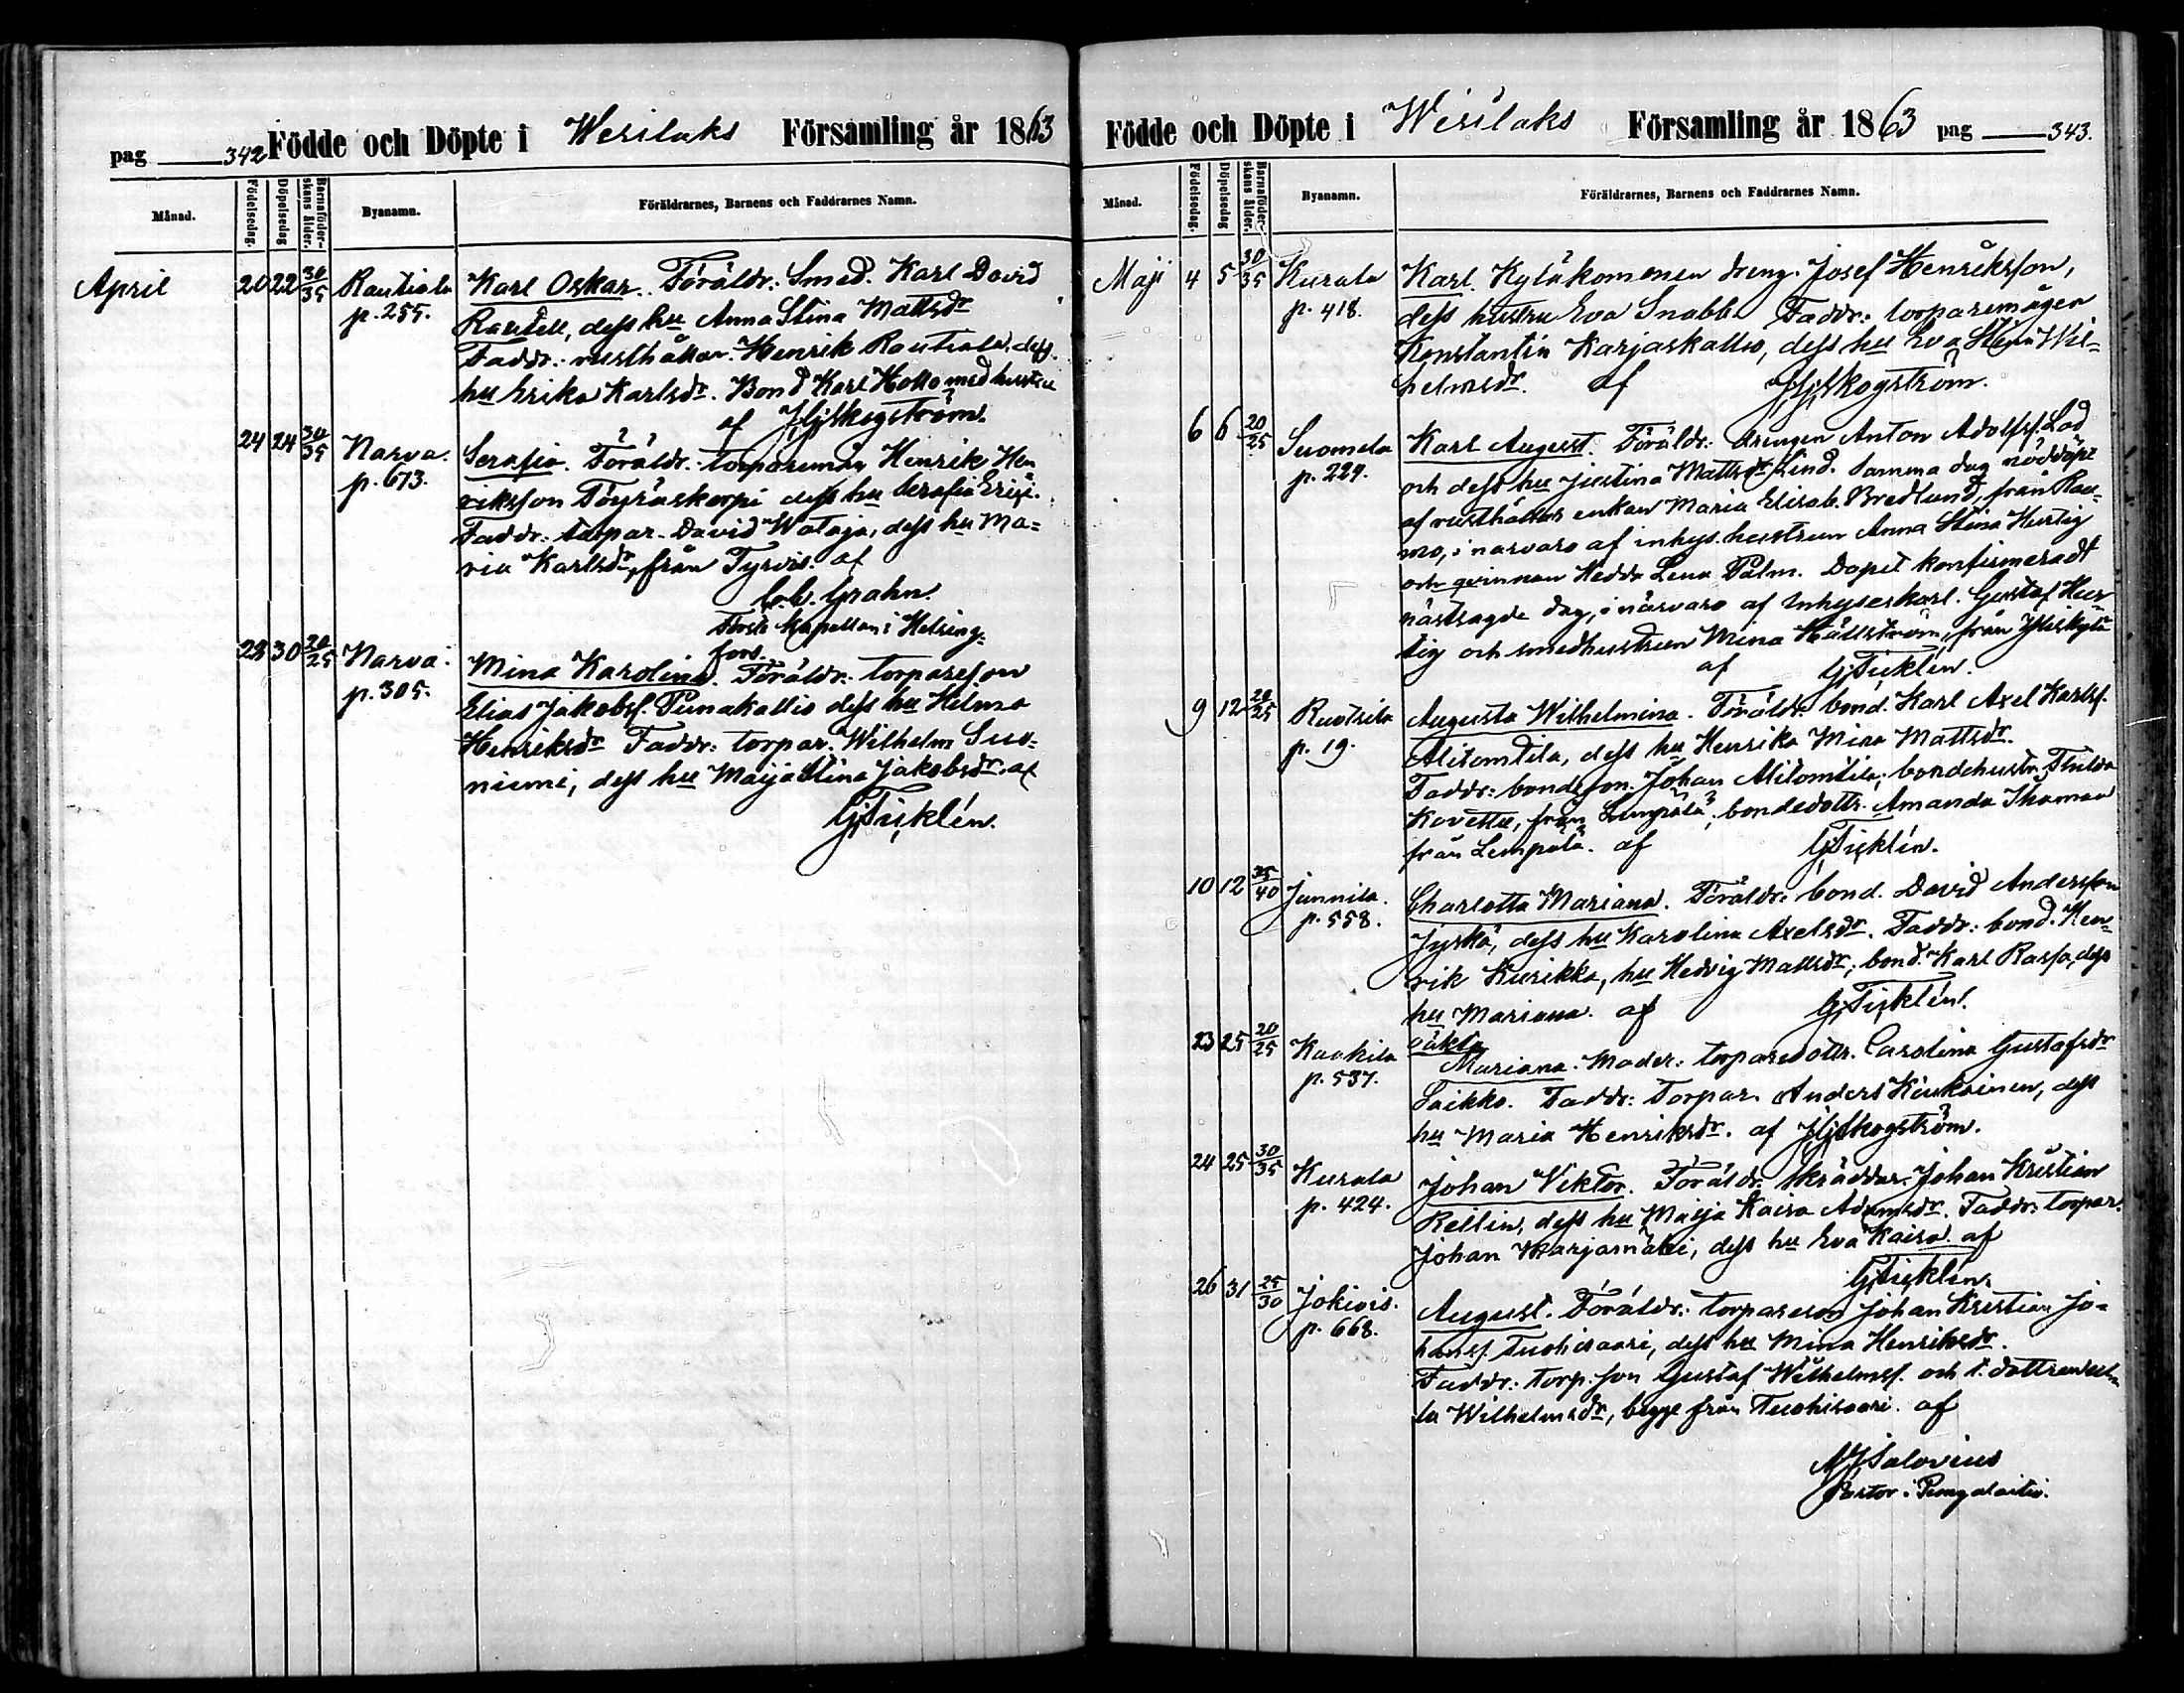 pag 342 Födde och Döpte i Wesilaks Församling år 1863
Månad. Födelsedag. Döpelsedag Barnaföderskans ålder. Byanamn. Föräldrarnes, Barnens och Faddrarnes Namn.
April 20 22 30/35 Rautiala Karl Oskar. Föräldr: Smed. Karl David
p. 255. Rautell, dess hu Anna Stina Mattsdr
Faddr: rusthållar. Henrik Rautiala, dess
hu Erika Karlsdr. Bond Karl Hollo med hustru
af J.G. Skogström.
24 24 30/35 Narva. Serafia. Föräldr: torparemåg Henrik Hen
p. 673. riksson Töyräskorpi dess hu Serafia
Faddr: torpar. David Wataja, dess hu Ma=
ria Karlsdr, från Tyrvis. af
Grahn.
Förste Kapellan i Helsing=
fors.
28 30 20/25 Narva. Mina Karolina. Föräldr: torpareson
p. 305. Elias Jakobsf. Punakallio dess hu Helma
Henriksdr Faddr: torpar. Wilhelm Suo=
niemi, dess hu Maija Stina Jakobsdr. af
G. Ticklén.
Födde och Döpte i Wesilaks Församling år 1863 pag 343.
Månad. Födelsedag. Döpelsedag Barnaföderskans ålder. Byanamn. Föräldrarnes, Barnens och Faddrarnes Namn.
Maji 4 5 30/35 Kurala Karl. Kyläkomonen dreng. Josef Henriksson,
p. 418. dess hustru Eva Snabb. Faddr: torparemågen
Konstantin Karjaskallio, dess hu Eva Stina Wil=
helmsdr. af J.G. Skogström.
6 6 20/25 Suomela Karl August. Föräldr: drengen Anton Adolfsf. Lod
p. 224. och dess hu Justina Mattsdr Lind. Samma dag nöddöpt
af rusthållars enkan Maria Elisab. Bredlund, från Rau=
mo, i närvaro af inhys. hustrun Anna Stina Hurtig
och qvinnan Hedda Lena Palm. Dopet konfirmeradt
nästsagde dag, i närvaro af Inhyseskarl. Gustaf Hur
tig och smedhustrun Mina Hällström, från Yliskylä
af G. Ticklén.
9 12 20/25 Ruotsila Augusta Wilhelmina. Föräldr: bond. Karl Axel Karlsf.
p. 19. Alitomtila, dess hu Henrika Mina Mattsdr.
Faddr: bondeson. Johan Alitomtila; bondehustr. Thilda
Kovettu, från Lempälä; bondedottr. Amanda Thomas
från Lempälä. af G. Ticklén.
10 12 35/40 Junnila. Charlotta Mariana. Föräldr: bond. David Andersson
p. 558. Jyskä, dess hu Karolina Axelsdr. Faddr: bond. Hen=
rik Kurikka, hu Hedvig Mattsdr; bond. Karl Rassa, dess
hu Mariana. af G. Ticklén.
23 25 20/25 Kaakila oäkta
p. 537. Mariana. Moder: torparedottr. Carolina Gustafsdr
Saikko. Faddr: Torpar. Anders Kiukainen, dess
hu Maria Henriksdr. af J.G. Skogström.
24 25 30/35 Kurala Johan Viktor. Föräldr: Skräddar. Johan Kristian
p. 424. Rellin, dess hu Maija Kaisa Adamsdr. Faddr: torpar.
Johan Marjamäki, dess hu Eva Kaisa. af
G. Ticklén.
26 31 25/30 Jokiois. August. Föräldr: torpareson Johan Kristian Jo=
p. 668. hansf. Tuohisaari, dess hu Mina Henriksdr.
Faddr: torp. son Gustaf Wilhelmsf. och t. dottren
la Wilhelmsdr, begge från Tuohisaari. af
Salovius
Pastor i Pungalaitio.